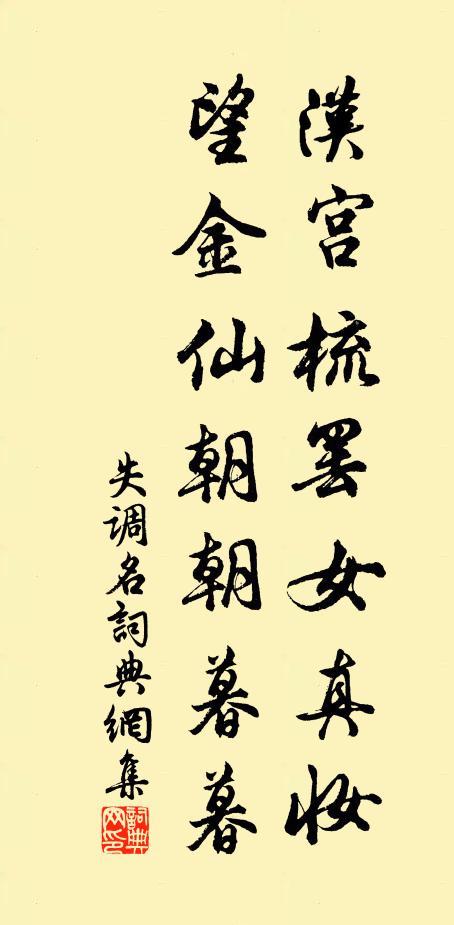 漢宫梳罢女真妆
望金仙朝朝暮暮
失调名詞典網集
詞典网印